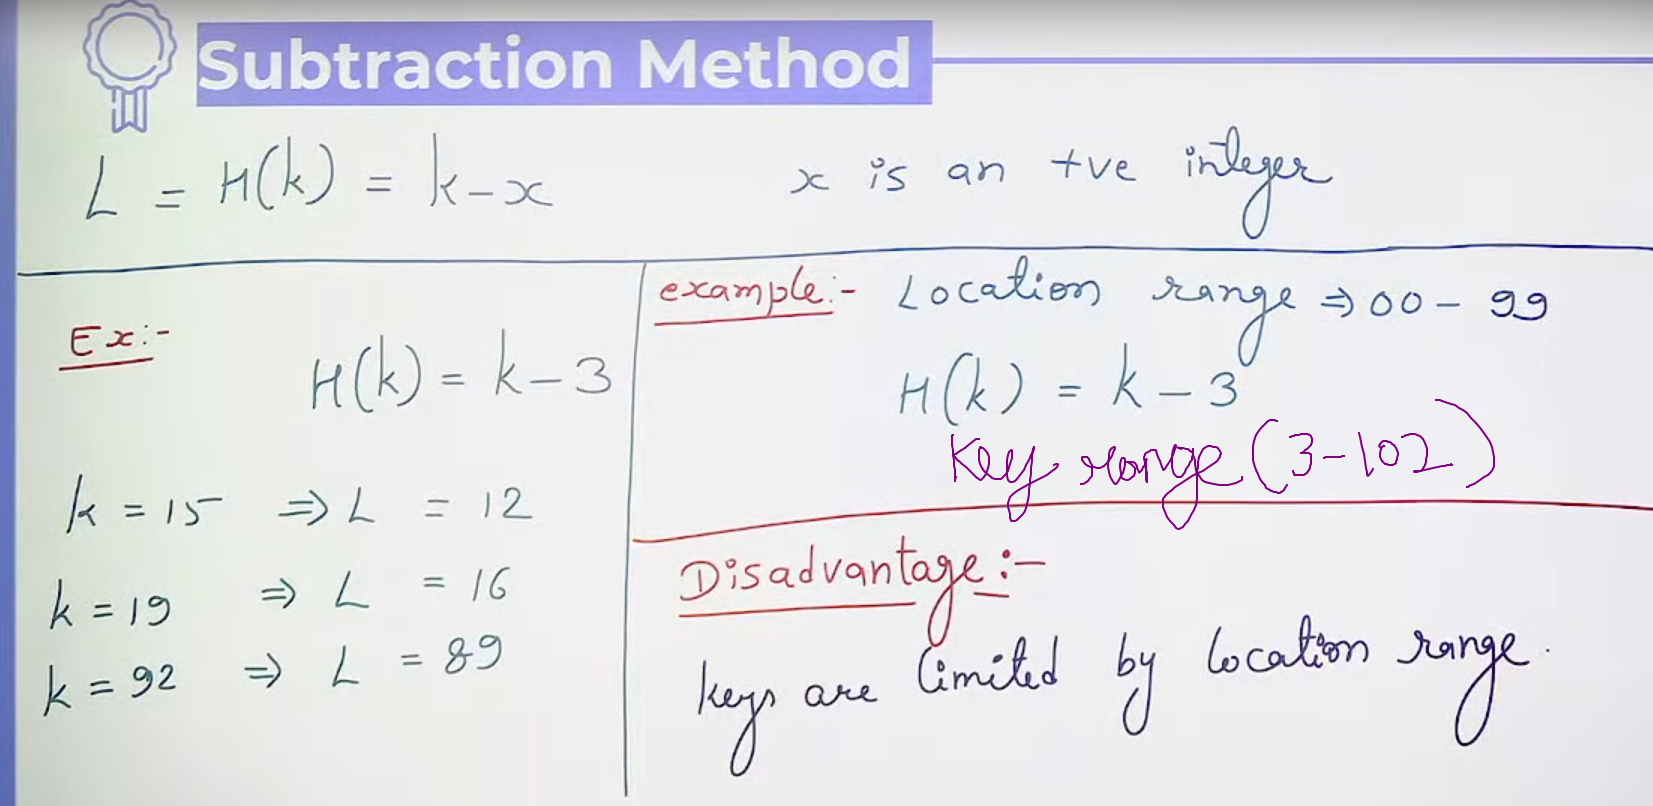 Subtraction Method
L = H(k) = k-x
x is an +ve integer
Ex:-
H(k) = k-3
k = 15 ⇒ L = 12
k = 19 ⇒ L = 16
k = 92 ⇒ L = 89
example:- Location range ⇒ 00 - 99
H(k) = k - 3
Key range (3-102)
Disadvantage:-
keys are limited by location range.